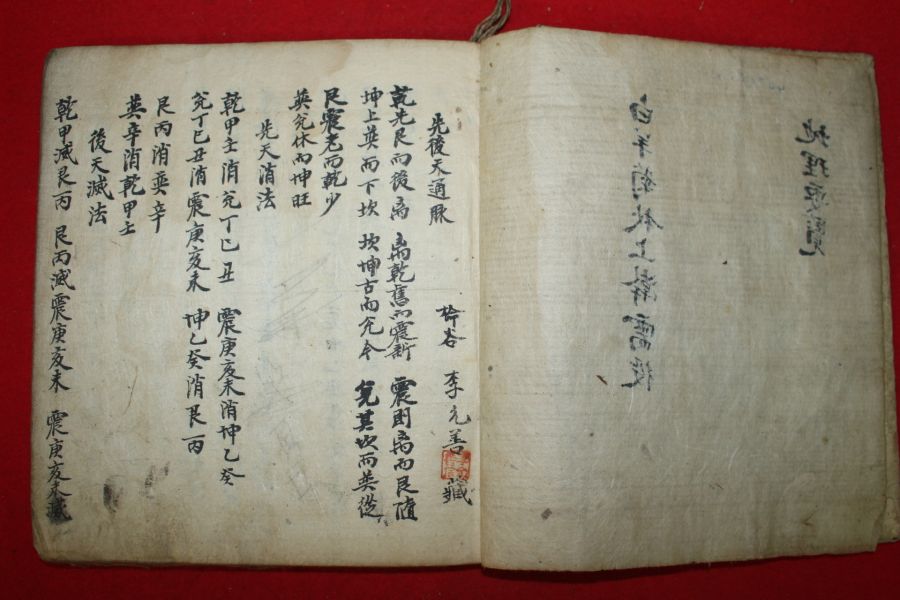 地理要覽
白羊菊秋上澣
先後天通脉 李元善 藏
乾先艮而後离 离乾舊而震新 震則离而艮値
坤上巽而下坎 坎坤古而兌今 兌其坎而巽從
艮震老而乾少
巽兌休而坤旺
先天消法
乾甲壬消兌丁巳丑 震庚亥未消坤乙癸
兌丁巳丑消震庚亥未 坤乙癸消艮丙
艮丙消巽辛
巽辛消乾甲壬
後天滅法
乾甲滅艮丙 艮丙滅震庚亥未 震庚亥未滅